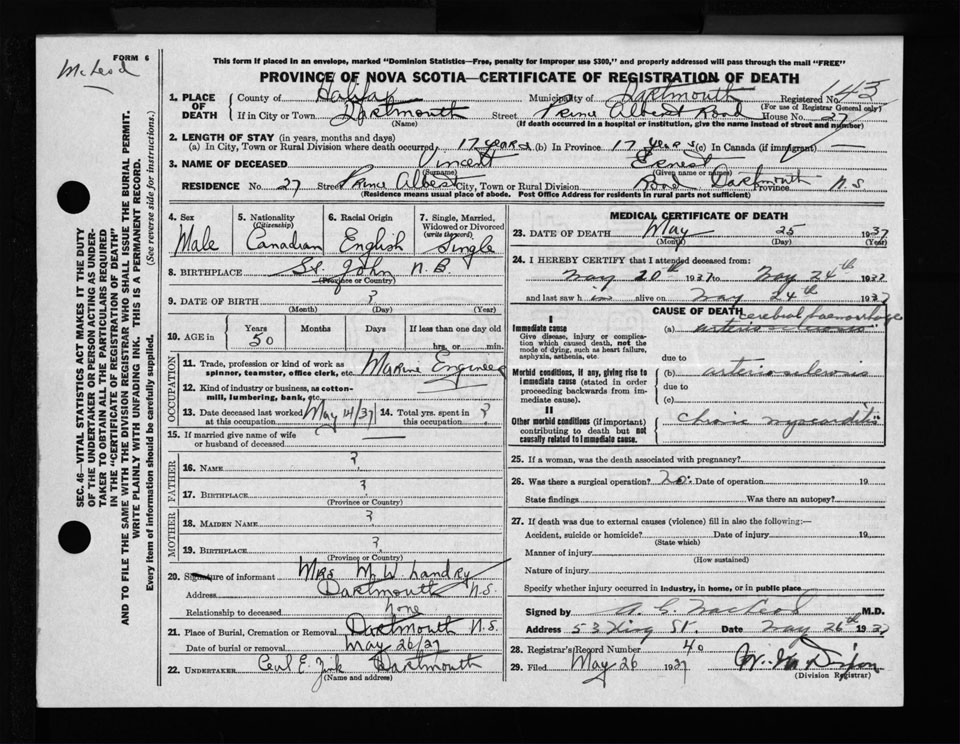 McLeod
FORM 6
This form if placed in an envelope, marked "Dominion Statistics—Free, penalty for improper use $300," and properly addressed will pass through the mail "FREE"
PROVINCE OF NOVA SCOTIA—CERTIFICATE OF REGISTRATION OF DEATH
SEC. 46—VITAL STATISTICS ACT MAKES IT THE DUTY
OF THE UNDERTAKER OR PERSON ACTING AS UNDER-
TAKER TO OBTAIN ALL THE PARTICULARS REQUIRED
IN THE "CERTIFICATE OF REGISTRATION OF DEATH"
AND TO FILE THE SAME WITH THE DIVISION REGISTRAR WHO SHALL ISSUE THE BURIAL PERMIT.
WRITE PLAINLY WITH UNFADING INK. THIS IS A PERMANENT RECORD.
Every item of information should be carefully supplied. (See reverse side for instructions.)
1. PLACE OF DEATH County of Halifax Municipality of Dartmouth Registered No. 43
(For use of Registrar General only)
If in City or Town Dartmouth Street Prince Albert Road House No. 27
(Name) (If death occurred in a hospital or institution, give the name instead of street and number)
2. LENGTH OF STAY (in years, months and days)
(a) In City, Town or Rural Division where death occurred 17 years (b) In Province 17 years (c) In Canada (if immigrant) —
3. NAME OF DECEASED Vincent Ernest
(Surname) (Given name or names)
RESIDENCE No. 27 Street Prince Albert City, Town or Rural Division Road Dartmouth Province N.S
(Residence means usual place of abode. Post Office Address for residents in rural parts not sufficient)
4. Sex Male
5. Nationality (Citizenship) Canadian
6. Racial Origin English
7. Single, Married, Widowed or Divorced (write the word) Single
8. BIRTHPLACE St. John N.B.
(Province or Country)
9. DATE OF BIRTH ?
(Month) (Day) (Year)
10. AGE in Years 50 Months Days If less than one day old
hrs. or min.
OCCUPATION
11. Trade, profession or kind of work as spinner, teamster, office clerk, etc. Marine Engineer
12. Kind of industry or business, as cotton-mill, lumbering, bank, etc.
13. Date deceased last worked at this occupation May 14/37 14. Total yrs. spent in this occupation ?
15. If married give name of wife or husband of deceased —
FATHER
16. NAME ?
17. BIRTHPLACE ?
(Province or Country)
MOTHER
18. MAIDEN NAME ?
19. BIRTHPLACE ?
(Province or Country)
20. Signature of informant Mrs M. W. Landry
Address Dartmouth N.S.
Relationship to deceased none
21. Place of Burial, Cremation or Removal Dartmouth N.S.
Date of burial or removal May 26/37
22. UNDERTAKER Cecil E. Zink Dartmouth
(Name and address)
MEDICAL CERTIFICATE OF DEATH
23. DATE OF DEATH May 25 1937
(Month) (Day) (Year)
24. I HEREBY CERTIFY that I attended deceased from:
May 20th 1937 to May 24th 1937
and last saw him alive on May 24th 1937
CAUSE OF DEATH cerebral haemorrhage
I
Immediate cause (a) arterio sclerosis
Give disease, injury or complication which caused death, not the mode of dying, such as heart failure, asphyxia, asthenia, etc.
due to
Morbid conditions, if any, giving rise to immediate cause (stated in order proceeding backwards from immediate cause).
(b) arterio sclerosis
due to
(c)
II
Other morbid conditions (if important) contributing to death but not causally related to immediate cause.
chronic myocarditis
25. If a woman, was the death associated with pregnancy?
26. Was there a surgical operation? no. Date of operation 19
State findings Was there an autopsy?
27. If death was due to external causes (violence) fill in also the following:—
Accident, suicide or homicide? Date of injury 19
(State which)
Manner of injury
(How sustained)
Nature of injury
Specify whether injury occurred in industry, in home, or in public place
Signed by A. G. MacLeod M.D.
Address 53 King St. Date May 26th 1937
28. Registrar's Record Number 40
29. Filed May 26 1937
(Division Registrar)